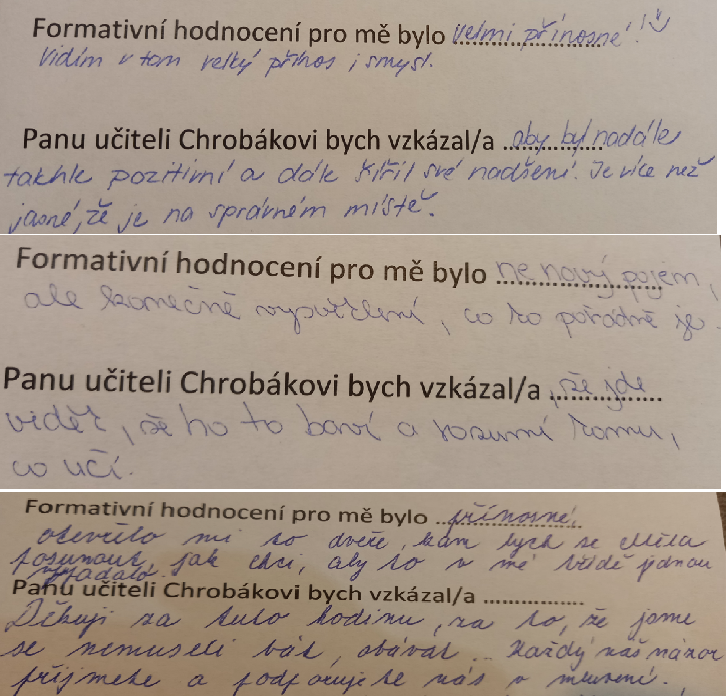 Formativní hodnocení pro mě bylo velmi přínosné!
Vidím v tom velký přínos i smysl.
Panu učiteli Chrobákovi bych vzkázal/a aby byl nadále
takhle pozitivní a dále šířil své nadšení. Je více než
jasné, že je na správném místě.
Formativní hodnocení pro mě bylo ne nový pojem,
ale konečně vysvětlení, co to pořádně je.
Panu učiteli Chrobákovi bych vzkázal/a, že jde
vidět, že ho to baví a rozumí tomu,
co učí.
Formativní hodnocení pro mě bylo přínosné,
otevřelo mi to dveře, kam bych se chtěla
posunout, jak chci, aby to v mé třídě jednou
vypadalo.
Panu učiteli Chrobákovi bych vzkázal/a
Děkuji za tuto hodinu, za to, že jsme
se nemuseli bát, obávat... Každý náš názor
přijmete a podporujete nás v mluvení.